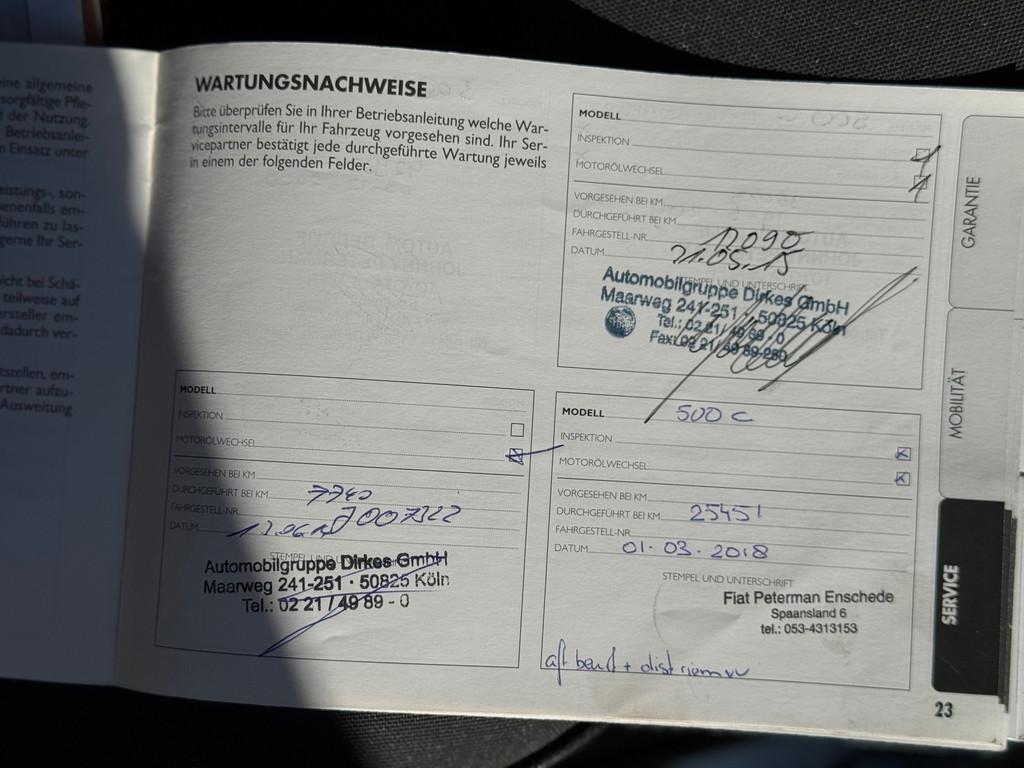 ine allgemeine
sorgfältige Pfle-
d der Nutzung.
Betriebsanlei-
n Einsatz unter
eistungs-, son-
benenfalls em-
führen zu las-
gerne Ihr Ser-
nicht bei Schä-
teilweise auf
ersteller em-
dadurch ver-
tstellen, em-
rtner aufzu-
Ausweitung
WARTUNGSNACHWEISE
Bitte überprüfen Sie in Ihrer Betriebsanleitung welche War-
tungsintervalle für Ihr Fahrzeug vorgesehen sind. Ihr Ser-
vicepartner bestätigt jede durchgeführte Wartung jeweils
in einem der folgenden Felder.
MODELL
INSPEKTION
MOTORÖLWECHSEL
VORGESEHEN BEI KM
DURCHGEFÜHRT BEI KM
FAHRGESTELL-NR. 12090
DATUM 21.05.15
STEMPEL UND UNTERSCHRIFT
Automobilgruppe Dirkes GmbH
Maarweg 241-251 · 50825 Köln
Tel.: 02 21 / 49 89 - 0
Fax: 02 21 / 49 89-289
MODELL
INSPEKTION
MOTORÖLWECHSEL
VORGESEHEN BEI KM
DURCHGEFÜHRT BEI KM 7740
FAHRGESTELL-NR. J007322
DATUM
STEMPEL UND
Automobilgruppe Dirkes GmbH
Maarweg 241-251 · 50825 Köln
Tel.: 02 21 / 49 89 - 0
MODELL 500 C
INSPEKTION
MOTORÖLWECHSEL
VORGESEHEN BEI KM
DURCHGEFÜHRT BEI KM 25451
FAHRGESTELL-NR.
DATUM 01-03-2018
STEMPEL UND UNTERSCHRIFT
Fiat Peterman Enschede
Spaansland 6
tel.: 053-4313153
+ dist riem vv
GARANTIE
MOBILITÄT
SERVICE
23